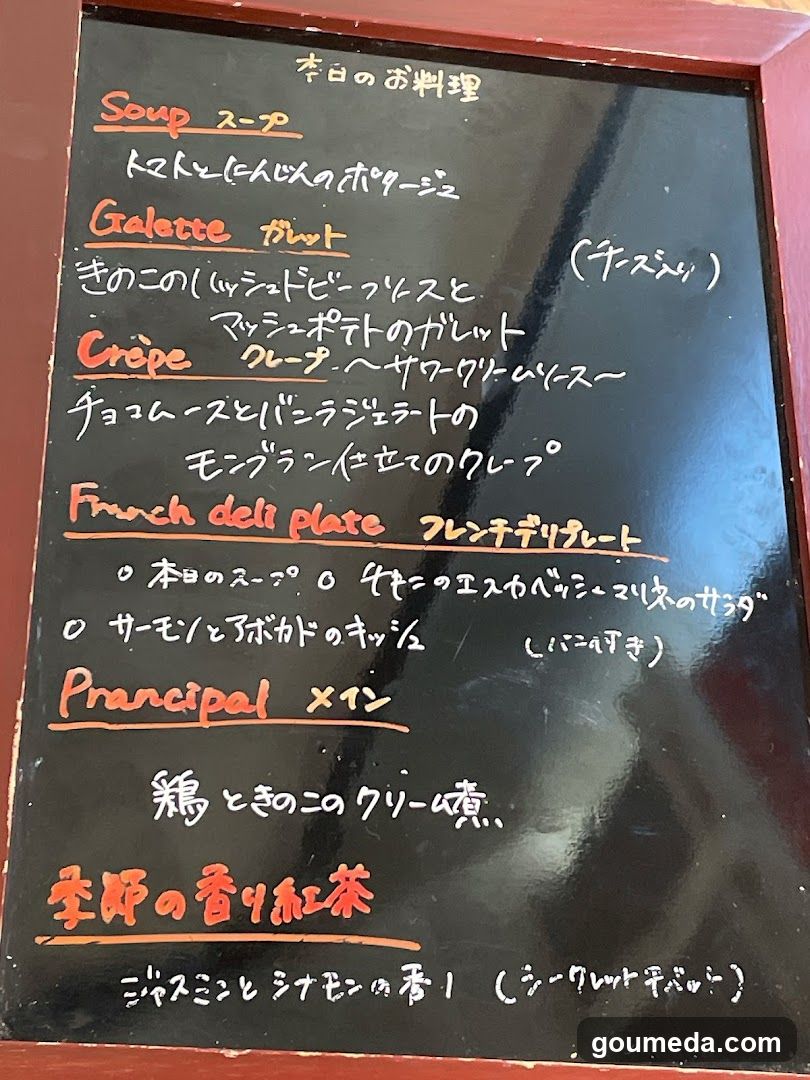 本日のお料理
Soup スープ
トマトとにんじんのポタージュ
Galette ガレット
(チーズ入り)
きのこのハッシュドビーフソースと
マッシュポテトのガレット
Crèpe クレープ ～サワークリームソース～
チョコムースとバニラジェラートの
モンブラン仕立てのクレープ
French deli plate フレンチデリプレート
○ 本日のスープ ○ チキンのエスカベッシュマリネのサラダ
○ サーモンとアボカドのキッシュ (パン付き)
Prancipal メイン
鶏ときのこのクリーム煮
季節の香り紅茶
ジャスミンとシナモンの香り (シークレットチベット)
goumeda.com